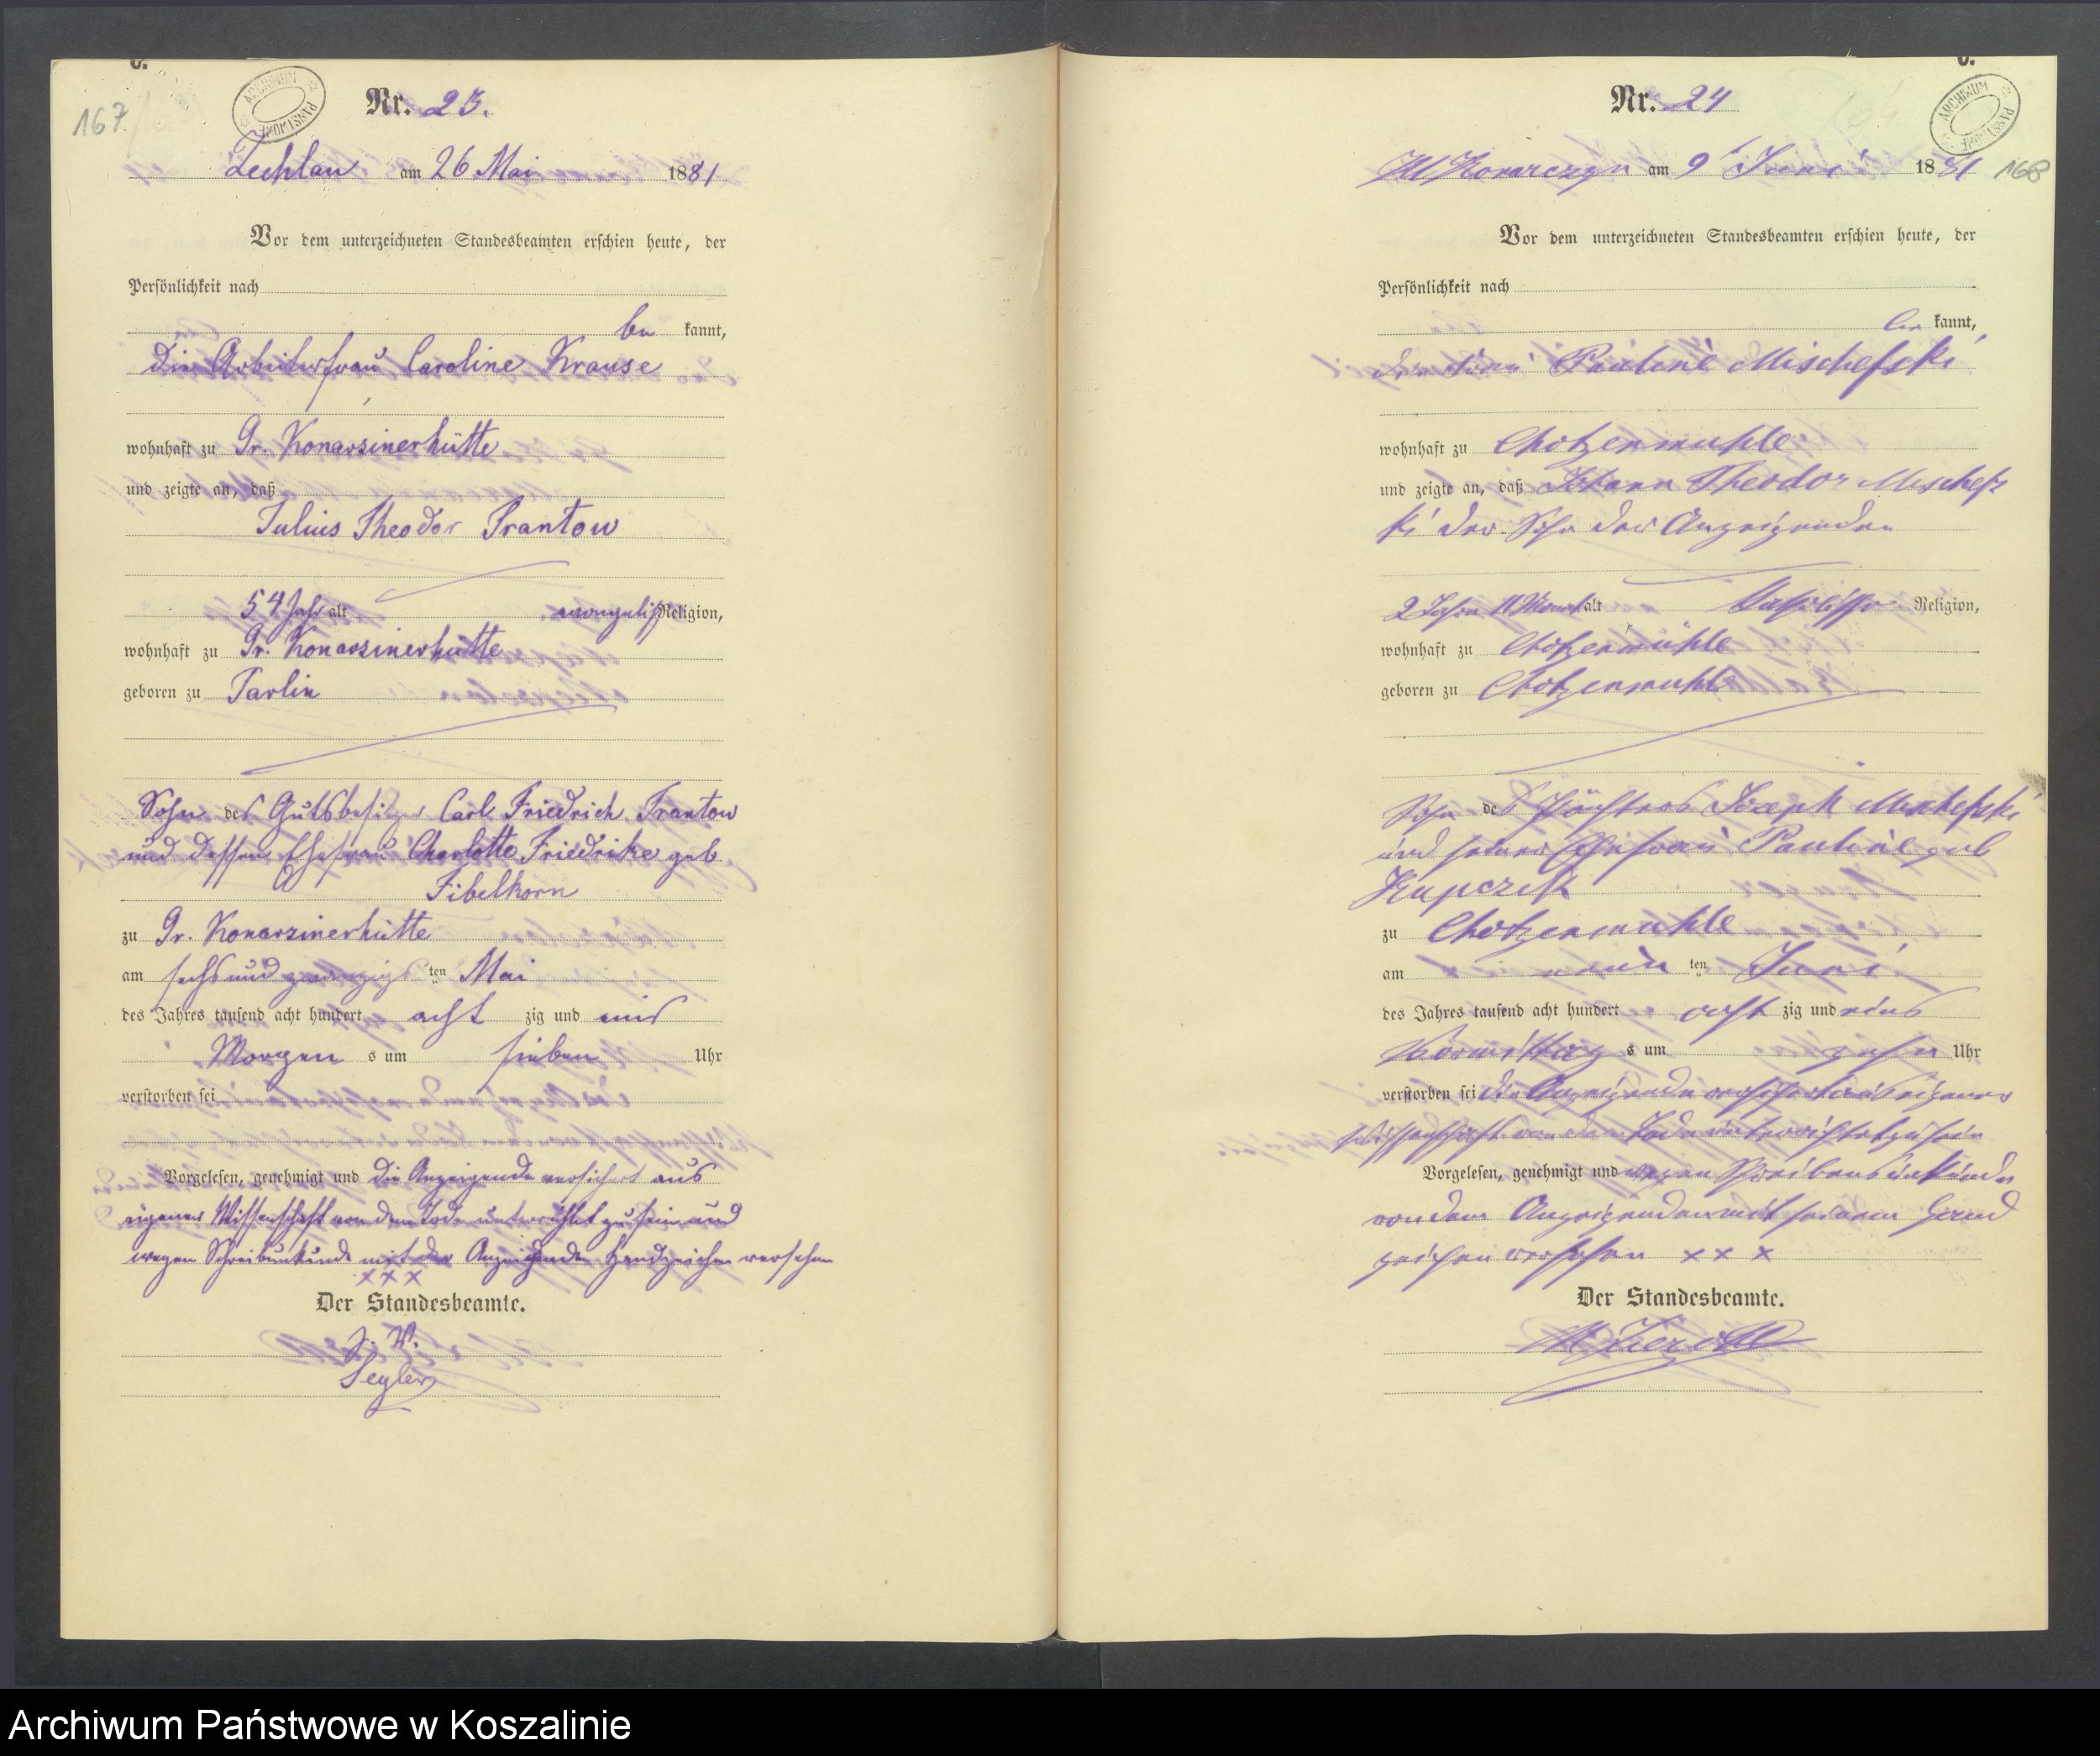 C.
167
ARCHIWUM PAŃSTWOWE
Nr. 23.
Zechlau am 26 Mai 1881
Vor dem unterzeichneten Standesbeamten erschien heute, der
Persönlichkeit nach
be kannt,
die Arbeiterfrau Caroline Krause
wohnhaft zu Gr. Konarzinerhütte
und zeigte an, daß
Julius Theodor Trantow
54 Jahr alt evangelisch Religion,
wohnhaft zu Gr. Konarzinerhütte
geboren zu Darlin
Sohn des Gutsbesitzer Carl Friedrich Trantow
und dessen Ehefrau Charlotte Friedrike geb
Fibelkorn
zu Gr. Konarzinerhütte
am sechsundzwanzigsten Mai
des Jahres tausend acht hundert acht zig und eins
Morgen s um sieben Uhr
verstorben sei
Vorgelesen, genehmigt und die Anzeigende versichert aus
eigener Wissenschaft von dem Tode unterrichtet zu sein und
wegen Schreibunkunde mit der Anzeigenden Handzeichen versehen
xxx
Der Standesbeamte.
J. V.
Segler
C.
ARCHIWUM PAŃSTWOWE
168
Nr. 24
Kl Konarczyn am 9 Juni 1881
Vor dem unterzeichneten Standesbeamten erschien heute, der
Persönlichkeit nach
be kannt,
Frau Pauline Mischefski
wohnhaft zu Chotzenmuhle
und zeigte an, daß Johann Theodor Mischefs
ki der Sohn der Anzeigenden
2 Jahre 11 Monat alt katholischer Religion,
wohnhaft zu Chotzenmühle
geboren zu Chotzenmuhle
Sohn des Pächters Joseph Mischefski
und seiner Ehefrau Pauline geb
Kupczik
zu Chotzenmuhle
am neun ten Juni
des Jahres tausend acht hundert acht zig und eins
Vormittag s um zehn Uhr
verstorben sei die Anzeigende versichert aus eigener
Wissenschaft von dem Tode unterrichtet zu sein
Vorgelesen, genehmigt und wegen Schreibensunkunde
von dem Anzeigenden mit seinem Hand
zeichen versehen x x x
Der Standesbeamte.
Archiwum Państwowe w Koszalinie